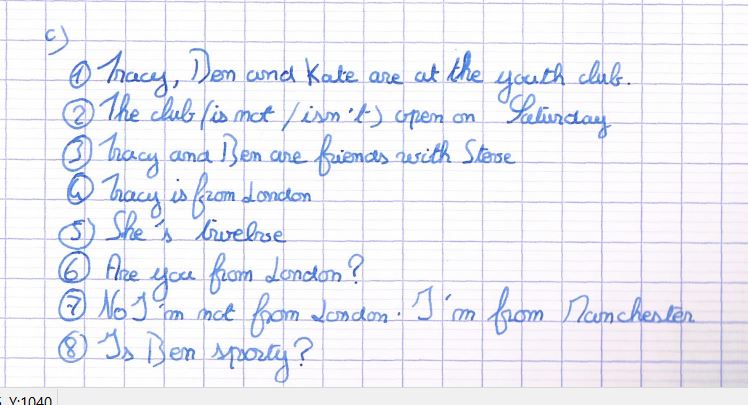 c)
① Tracy, Ben and Kate are at the youth club.
② The club (is not / isn't) open on Saturday
③ Tracy and Ben are friends with Steve
④ Tracy is from London
⑤ She's twelve
⑥ Are you from London?
⑦ No I'm not from London. I'm from Manchester
⑧ Is Ben sporty?
Y:1040